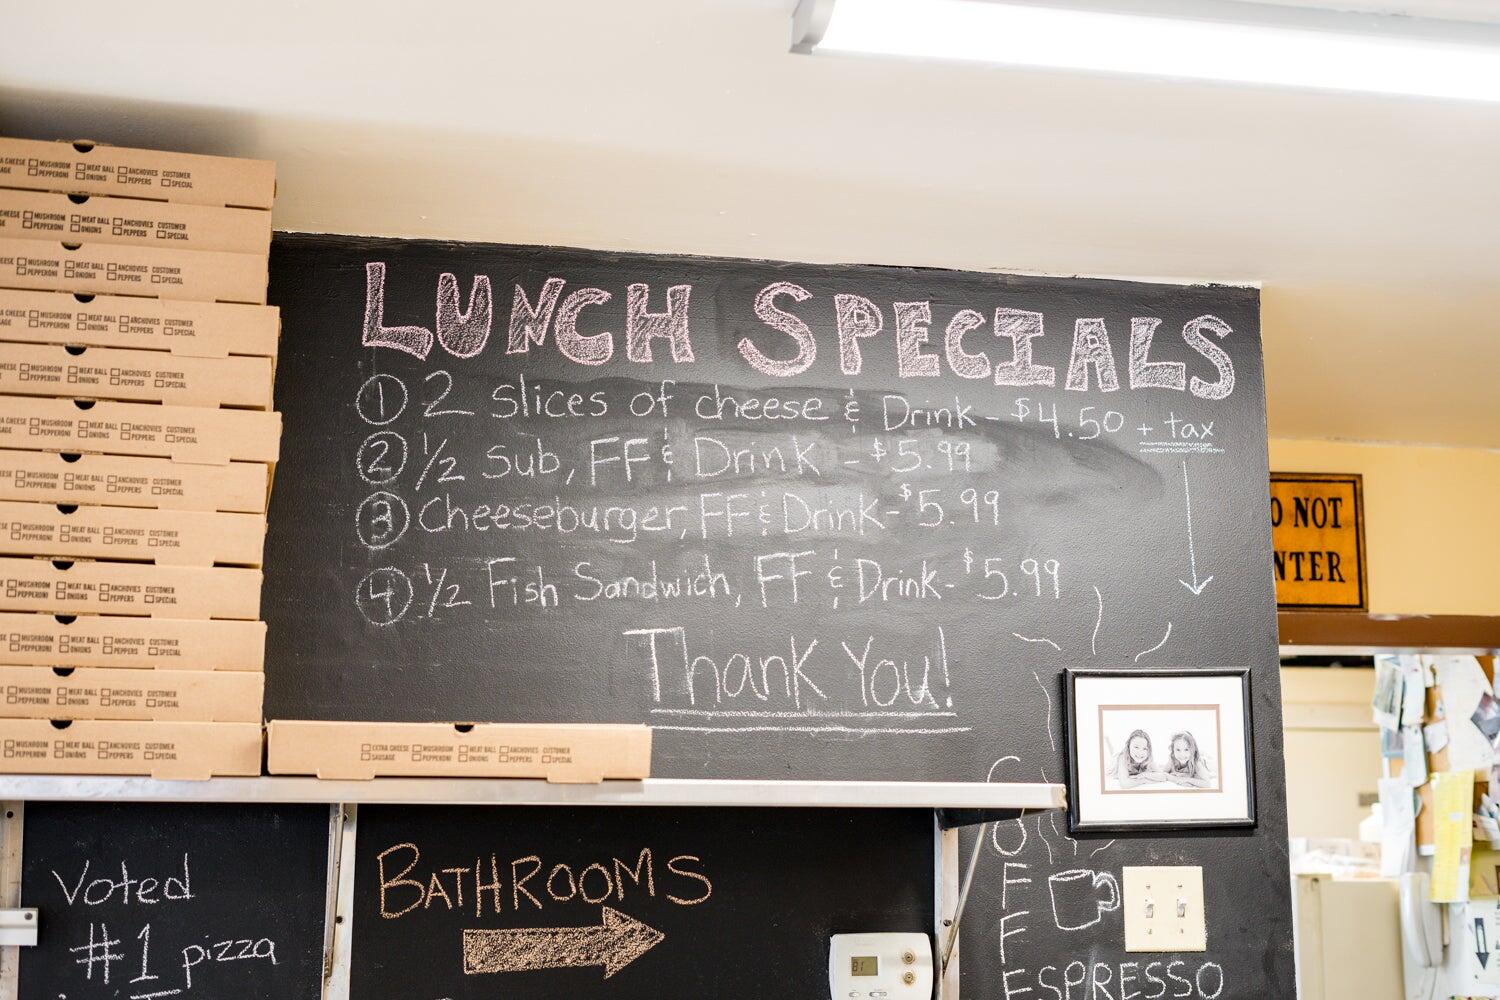 LUNCH SPECIALS
① 2 slices of cheese & Drink - $4.50 + tax
② 1/2 Sub, FF & Drink - $5.99
③ Cheeseburger, FF & Drink - $5.99
④ 1/2 Fish Sandwich, FF & Drink - $5.99
Thank You!
EXTRA CHEESE MUSHROOM MEAT BALL ANCHOVIES CUSTOMER
SAUSAGE PEPPERONI ONIONS PEPPERS SPECIAL
Voted
#1 pizza
BATHROOMS
81
COFFE
ESPRESSO
NOT